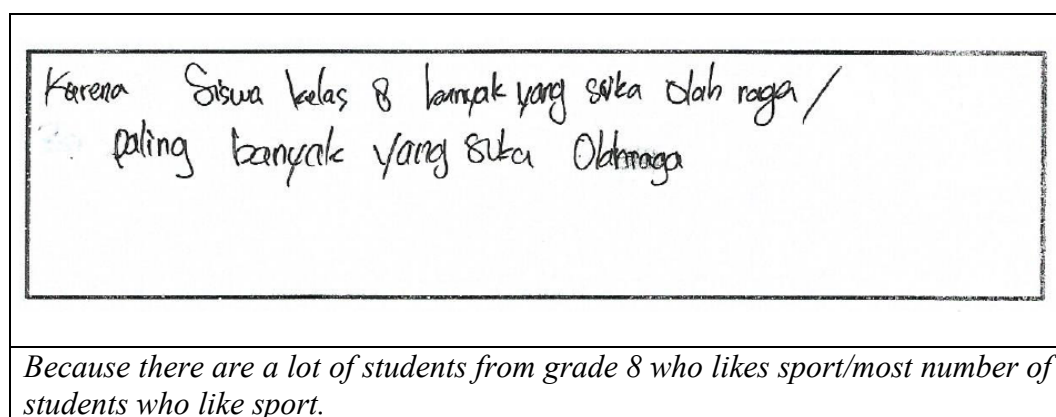 Karena Siswa kelas 8 banyak yang suka olah raga /
paling banyak yang suka Olahraga
Because there are a lot of students from grade 8 who likes sport/most number of
students who like sport.